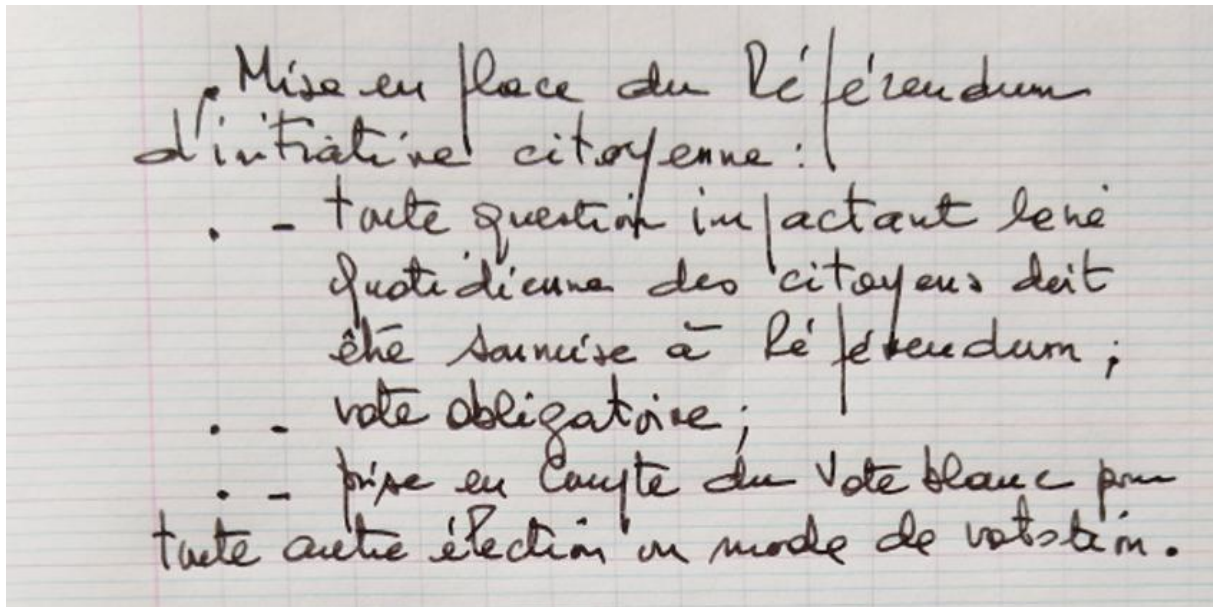 . Mise en place du Référendum
d'initiative citoyenne :
. - toute question impactant la vie
quotidienne des citoyens doit
être soumise à Référendum ;
. - vote obligatoire ;
. - prise en compte du Vote blanc pour
toute autre élection ou mode de votation.